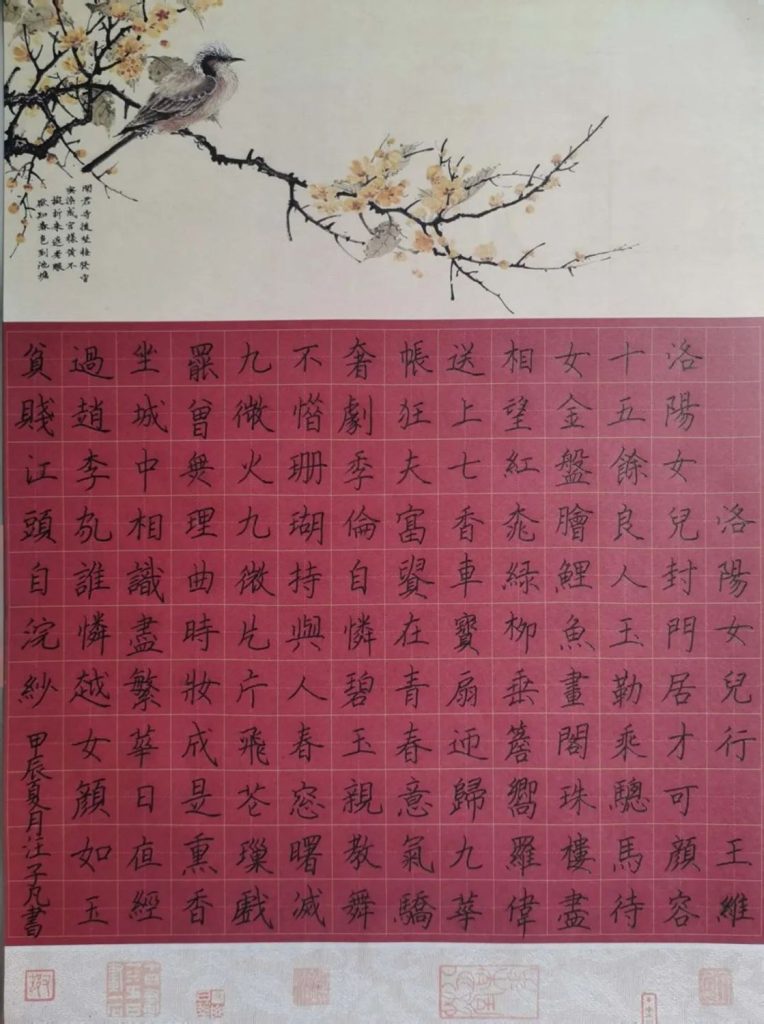 聞君寺後野梅發香
蜜染成宮樣黃不
擬折來遮老眼
欲知春色到池塘
洛陽女兒行 王維
洛陽女兒封門居才可顏容
十五餘良人玉勒乘驄馬待
女金盤膾鯉魚畫閣珠樓盡
相望紅桃綠柳垂簷嚮羅偉
送上七香車寶扇迎歸九華
帳狂夫富貴在青春意氣驕
奢劇季倫自憐碧玉親教舞
不惜珊瑚持與人春窓曙滅
九微火九微片片飛花璅戲
罷曾無理曲時妝成是熏香
坐城中相識盡繁華日夜經
過趙李家誰憐越女顏如玉
貧賤江頭自浣紗 甲辰夏月汪子凡書